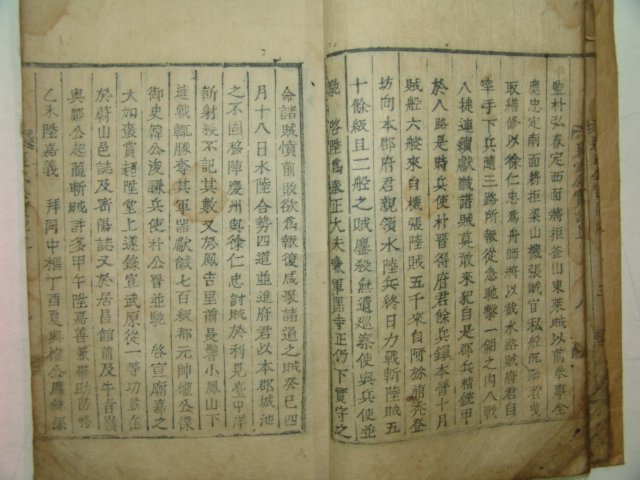 監朴弘春定西面將拒釜山東萊賊以萬
應忠定南面將拒梁山機張賊官私船沉海者曳
取繕修以徐仁忠爲舟師將以截水路賊府君自
率手下兵隨三路所徹從急馳擊一傾之內八戰
八捷連續獻馘諸賊莫敢來犯自是郡兵精銳甲
於八路是時兵使朴晋得府君餘兵鎭本晋十月
賊船六艘來自機張陸賊五千來自阿 浦 登
坊向本郡府君親領水陸兵終日力戰斬陸賊五
十餘級且二船之賊鏖殺無遺巡察使與兵使並
馳 啓陞爲 正大夫 軍器寺正仍下 守之
命諸賊憤前敗欲爲報復咸聚諸道之賊癸巳四
月十八日水陸合勢四道並進府君以本郡城池
之不固移陣慶州與徐仁忠討賊於利見臺中洋
斬射殺不記其數又於鳳吉里前是 小鳳山下
連戰輒勝奪其軍器獻馘七百級都元帥權公慄
御史韓公浚謙兵使朴公晋並馳 啓宣廟嘉之
大加褒賞超陞堂上遂錄宣武原從一等功 在
於蔚山邑誌及密陽誌又於居昌館前及牛旨嶺
與鄭公起龍斬賊許多甲午陞嘉善兼帶助防將
乙未陞嘉義 拜同中樞丁酉夏與權公應銖